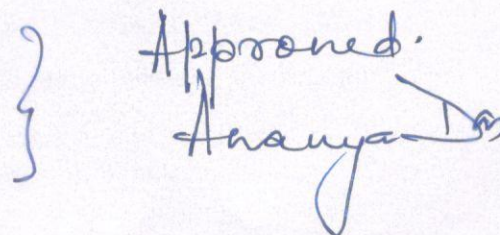 } Approved.
Ananya Das